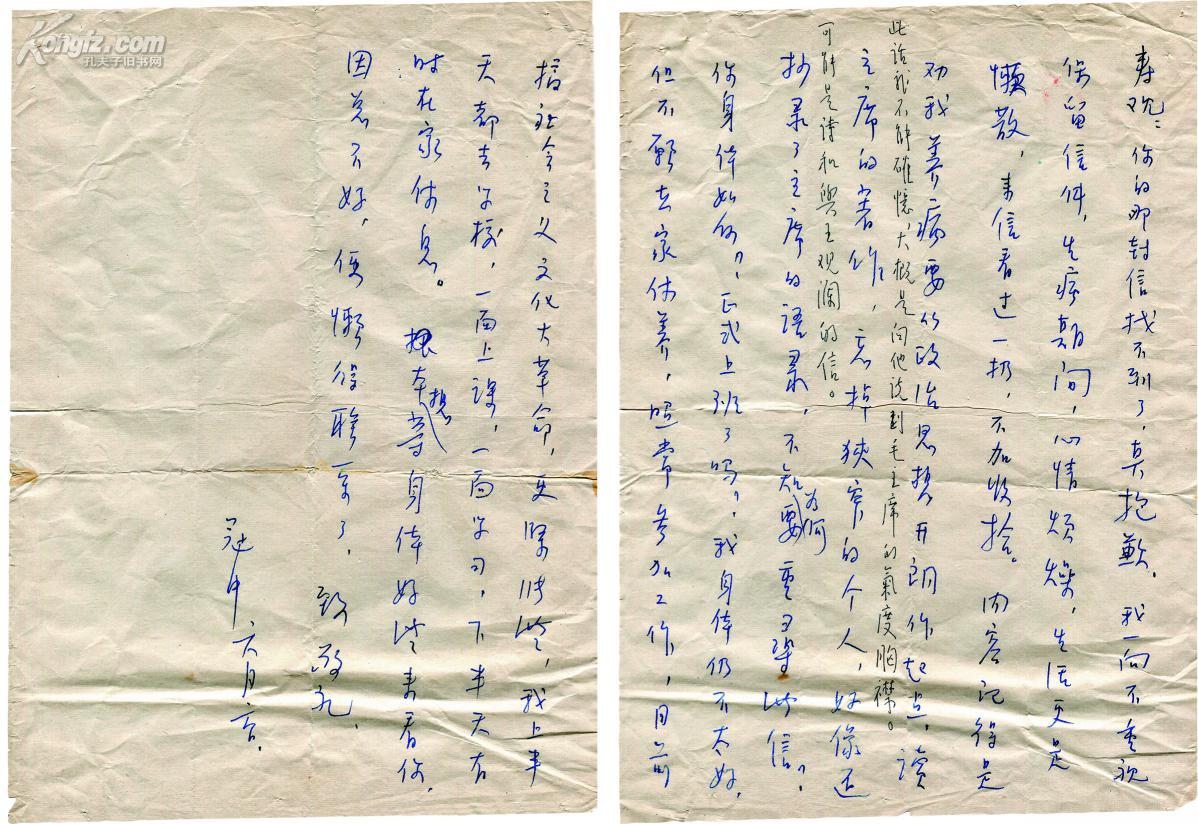 寿观：你的那封信找不到了，真抱歉。我一向不重视
保留信件，生病期间，心情烦燥，生活更是
懒散，来信看过一扔，不加收捨。内容记得是
劝我养病要以政治思想开朗作起点，读
此话我不能確憶，大概是向他说到毛主席的氣度胸襟。
主席的著作，忘掉狭窄的个人，好像还
可能是诗和與王观澜的信。
抄录了主席的语录，不知为何要重寻此信？
你身体如何？正式上班了吗？我身体仍不太好，
但不愿去家休养，照常参加工作，目前
搞社会主义文化大革命，更紧张些，我上半
天都去学校，一面上课，一面学习，下半天有
时在家休息。本想等身体好些来看你，
因总不好，便懒得联系了，致敬礼，
冠中 六月
Kongfz.com
孔夫子旧书网